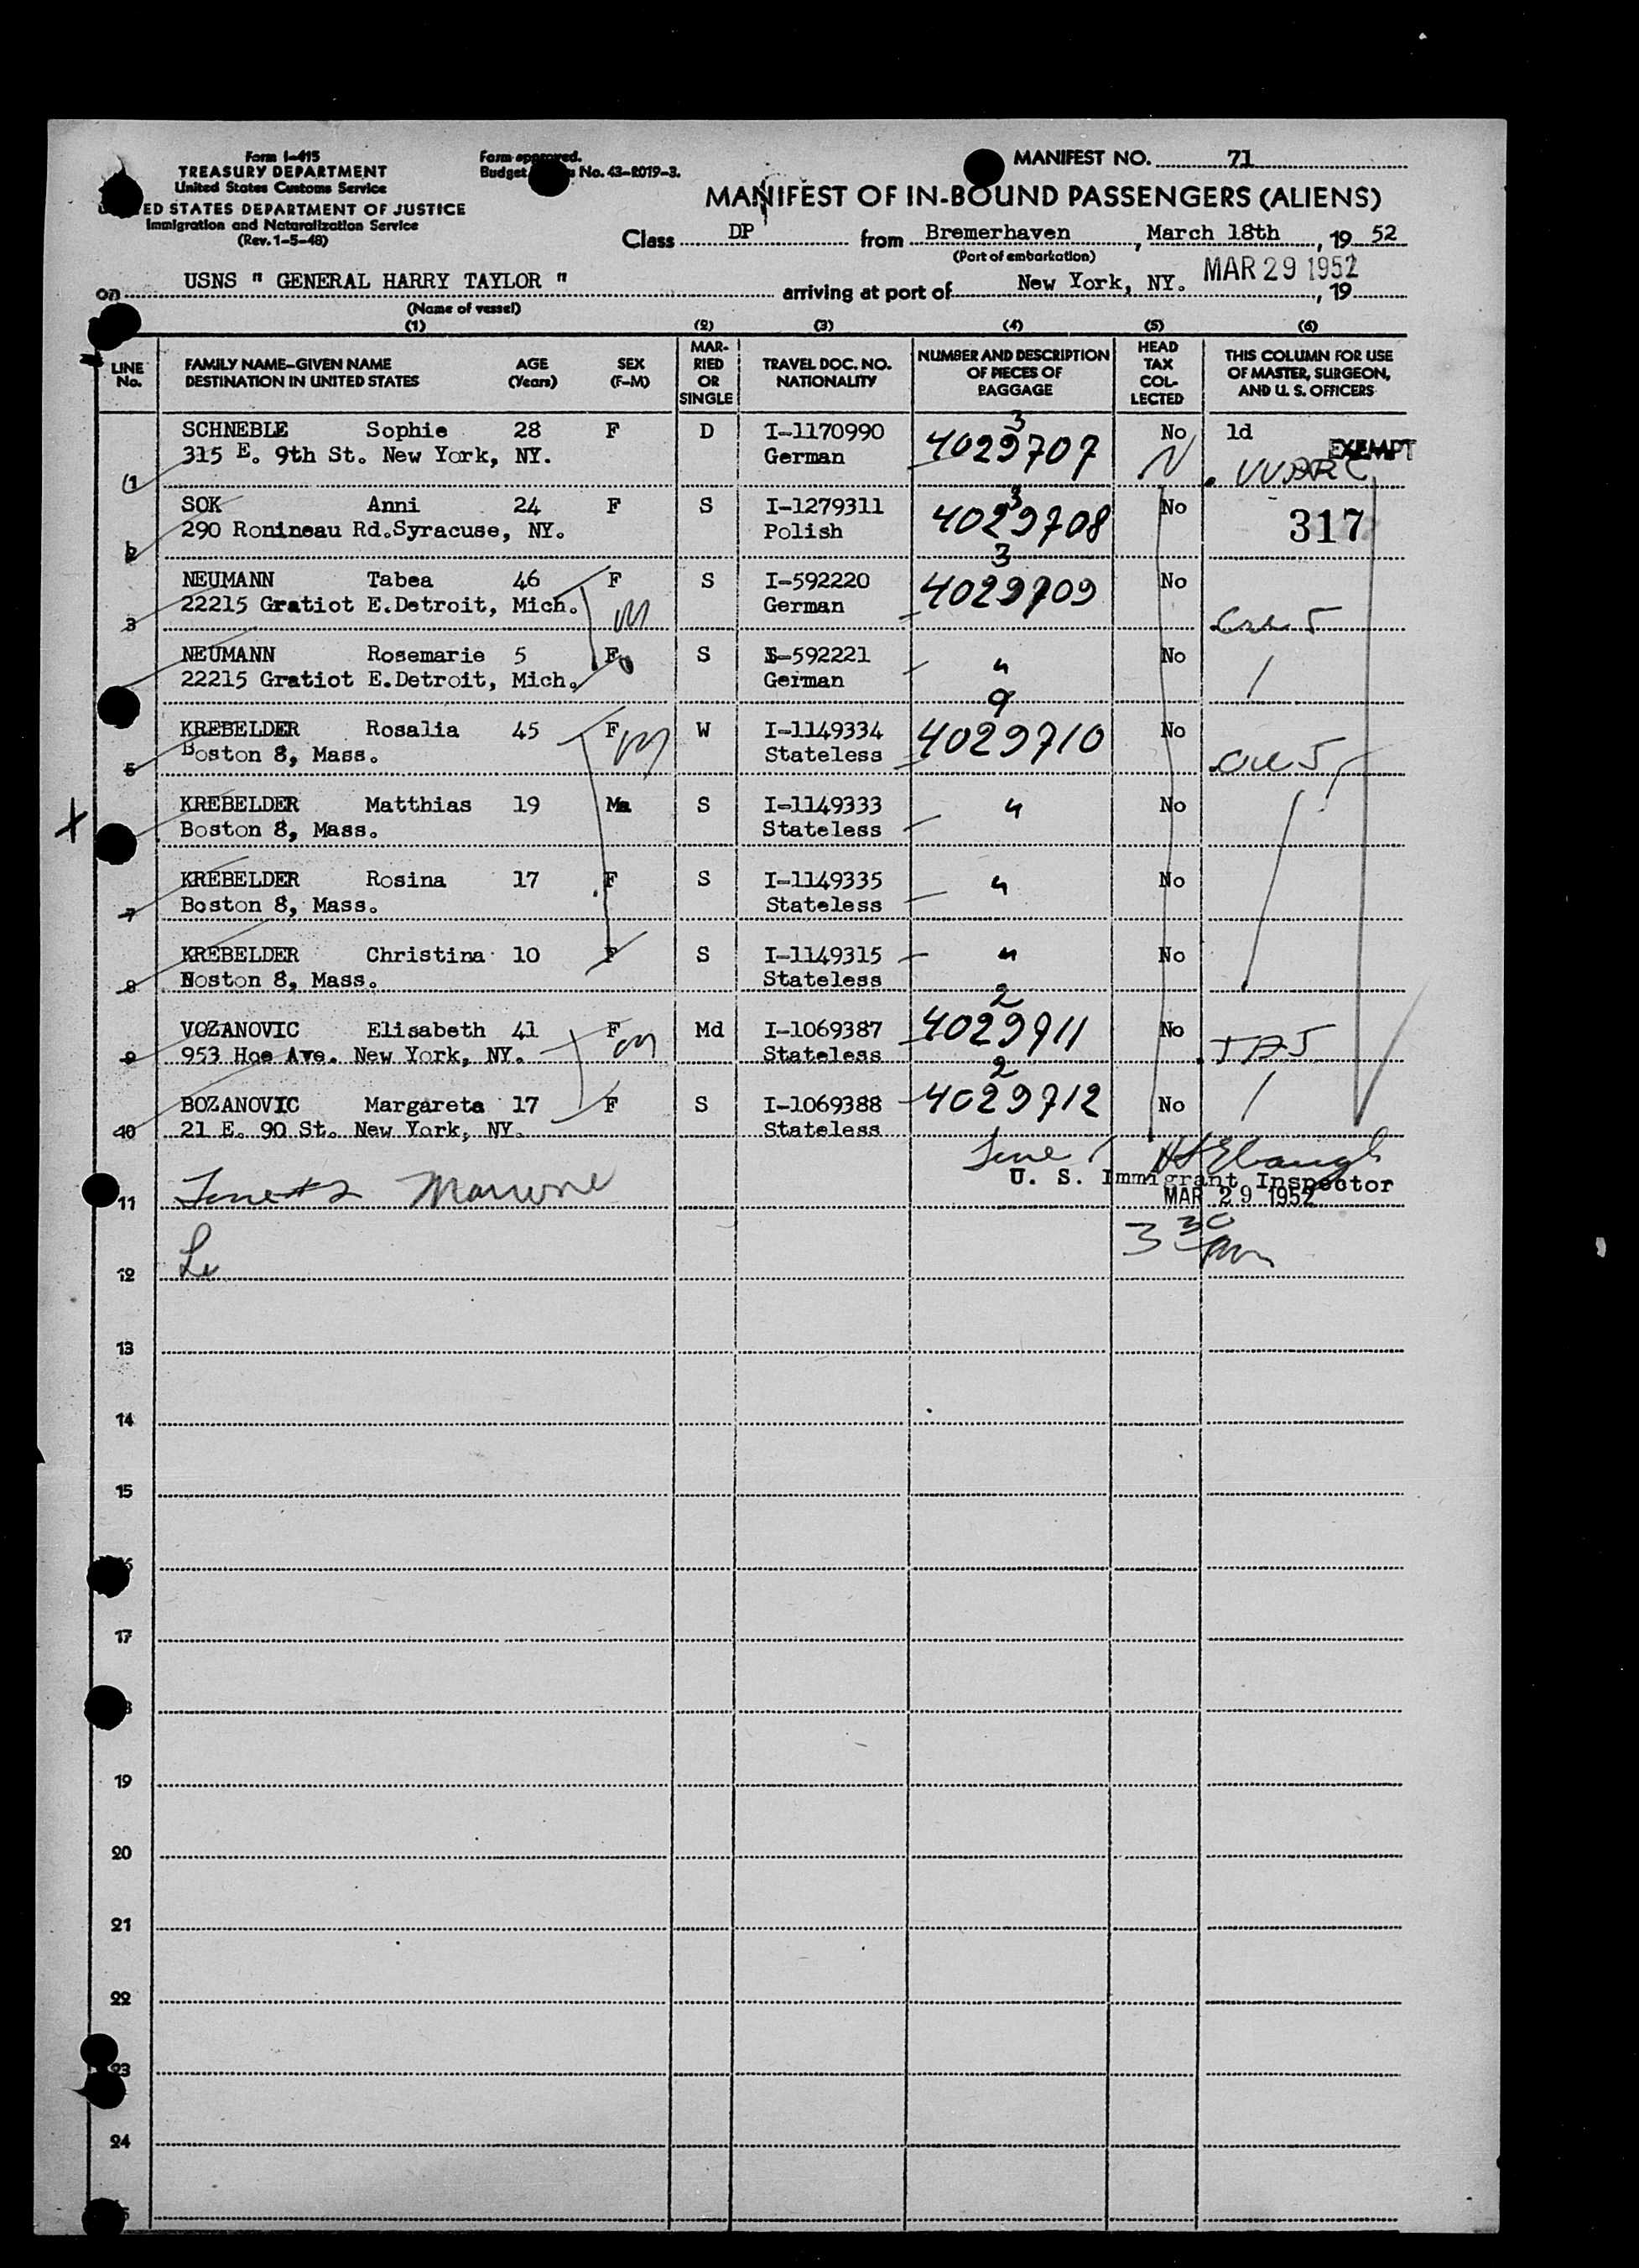 Form I-415
TREASURY DEPARTMENT
United States Customs Service
ED STATES DEPARTMENT OF JUSTICE
Immigration and Naturalization Service
(Rev. 1-5-48)
Form approved.
Budget No. 43-R019-3.
MANIFEST NO. 71
MANIFEST OF IN-BOUND PASSENGERS (ALIENS)
Class DP from Bremerhaven, March 18th, 19 52
(Port of embarkation)
on USNS " GENERAL HARRY TAYLOR " arriving at port of New York, NY. MAR 29 1952, 19
(Name of vessel)
(1) (2) (3) (4) (5) (6)
LINE No. FAMILY NAME-GIVEN NAME DESTINATION IN UNITED STATES AGE (Years) SEX (F-M) MARRIED OR SINGLE TRAVEL DOC. NO. NATIONALITY NUMBER AND DESCRIPTION OF PIECES OF BAGGAGE HEAD TAX COLLECTED THIS COLUMN FOR USE OF MASTER, SURGEON, AND U. S. OFFICERS
SCHNEBLE Sophie 28 F D I-1170990 3 4029707 No 1d EXEMPT
1 315 E. 9th St. New York, NY. German N
SOK Anni 24 F S I-1279311 3 4029708 No 317
2 290 Ronineau Rd.Syracuse, NY. Polish
NEUMANN Tabea 46 F S I-592220 3 4029709 No
3 22215 Gratiot E.Detroit, Mich. M German
NEUMANN Rosemarie 5 F S I-592221 " No
22215 Gratiot E.Detroit, Mich. German
KREBELDER Rosalia 45 F W I-1149334 9 4029710 No
5 Boston 8, Mass. M Stateless
X KREBELDER Matthias 19 Ma S I-1149333 " No
Boston 8, Mass. Stateless
KREBELDER Rosina 17 F S I-1149335 " No
7 Boston 8, Mass. Stateless
KREBELDER Christina 10 F S I-1149315 " No
8 Boston 8, Mass. Stateless
VOZANOVIC Elisabeth 41 F Md I-1069387 2 4029711 No
9 953 Hoe Ave. New York, NY. M Stateless
BOZANOVIC Margareta 17 F S I-1069388 2 4029712 No
10 21 E. 90 St. New York, NY. Stateless
U. S. Immigrant Inspector
11 MAR 29 1952
3 30 PM
12
13
14
15
17
19
20
21
22
23
24